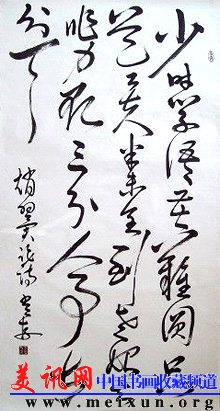 少时学语苦难圆只
道工夫半未全到老始知
非力取三分人事七
分天
赵翼论诗
美讯网 中国书画收藏频道
www.meixun.org